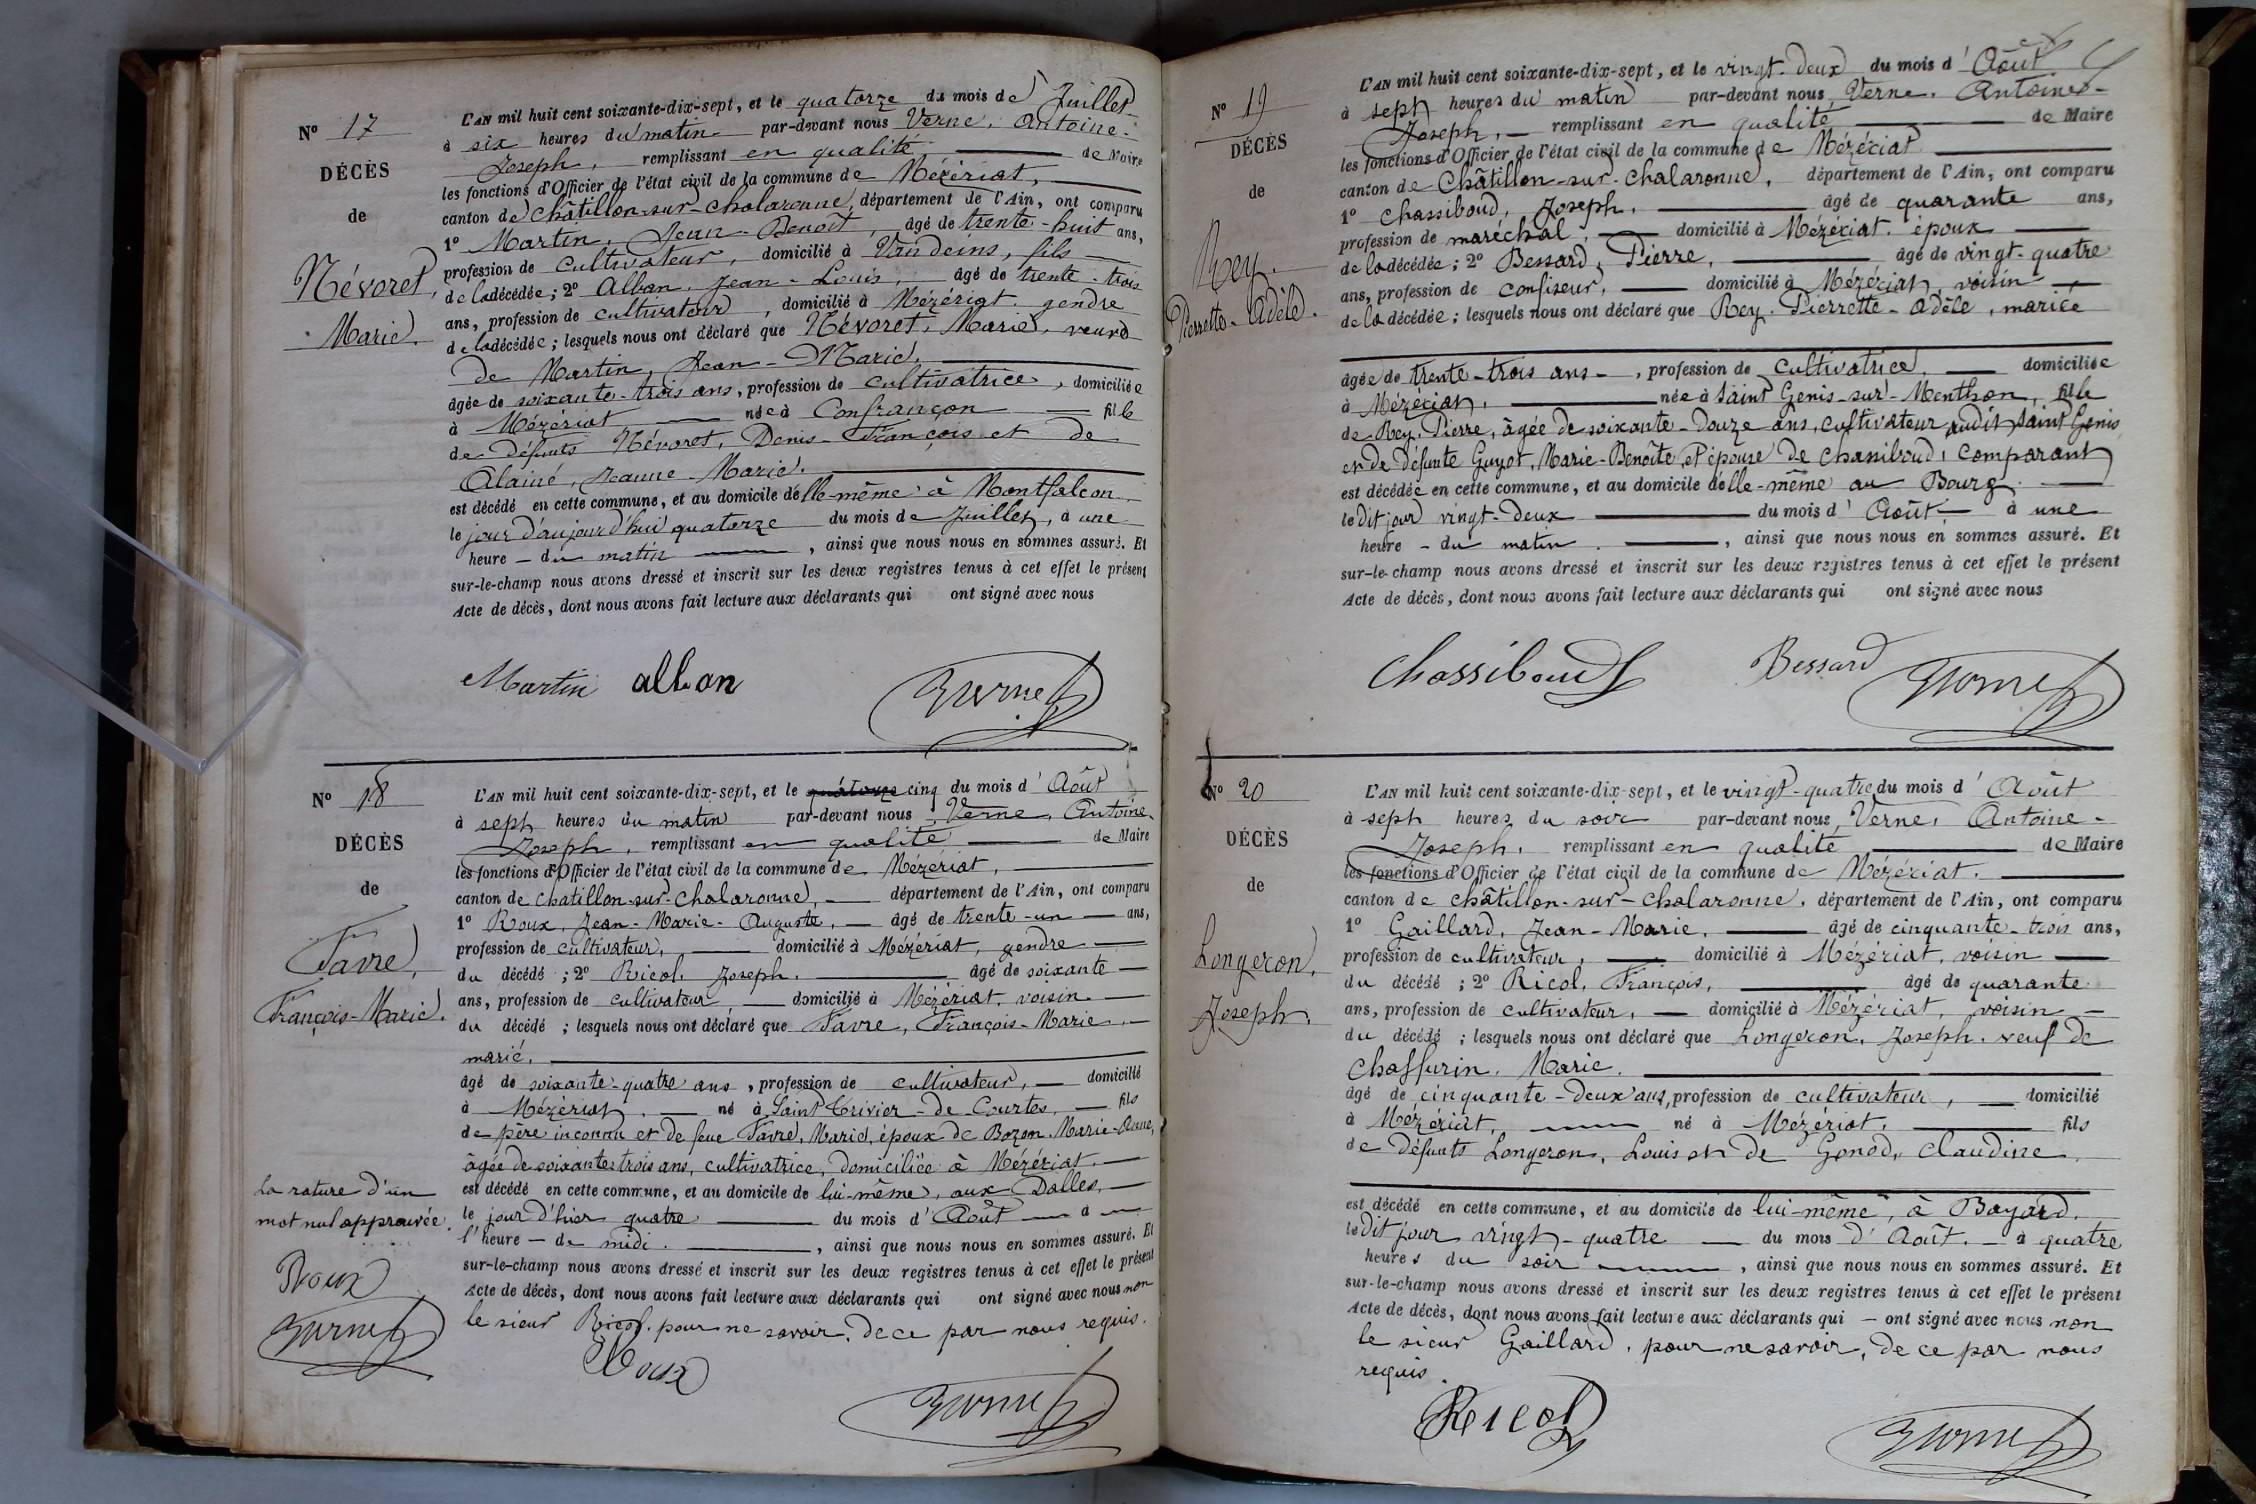 N° 17
DÉCÈS
de
Névoret,
Marie.
L'AN mil huit cent soixante-dix-sept, et le quatorze du mois de Juillet
à six heures du matin par-devant nous Verne, Antoine-
Joseph, remplissant en qualité de Maire
les fonctions d'Officier de l'état civil de la commune de Mézériat,
canton de Châtillon-sur-Chalaronne, département de l'Ain, ont comparu
1° Martin, Jean-Benoît, âgé de trente-huit ans,
profession de cultivateur, domicilié à Vandeins, fils
de la décédée ; 2° Alban, Jean-Louis, âgé de trente-trois
ans, profession de cultivateur, domicilié à Mézériat, gendre
de la décédée ; lesquels nous ont déclaré que Névoret, Marie, veuve
de Martin, Jean-Marie.
âgée de soixante-trois ans, profession de cultivatrice, domiciliée
à Mézériat née à Confrançon fille
de défunts Névoret, Denis-François et de
Alainé, Jeanne-Marie.
est décédé en cette commune, et au domicile d'elle-même à Montfalcon
le jour d'aujourd'hui quatorze du mois de Juillet, à une
heure - du matin, ainsi que nous nous en sommes assuré. Et
sur-le-champ nous avons dressé et inscrit sur les deux registres tenus à cet effet le présent
Acte de décès, dont nous avons fait lecture aux déclarants qui ont signé avec nous
Martin alban Verne
N° 18
DÉCÈS
de
Favre,
François-Marie.
L'AN mil huit cent soixante-dix-sept, et le quatorze cinq du mois d'Août
à sept heures du matin par-devant nous, Verne, Antoine-
Joseph, remplissant en qualité de Maire
les fonctions d'Officier de l'état civil de la commune de Mézériat,
canton de chatillon-sur-chalaronne, département de l'Ain, ont comparu
1° Roux, Jean-Marie-Auguste, âgé de trente-un ans,
profession de cultivateur, domicilié à Mézériat, gendre
du décédé ; 2° Ricol, Joseph. âgé de soixante
ans, profession de cultivateur domicilié à Mézériat, voisin
du décédé ; lesquels nous ont déclaré que Favre, François-Marie,
marié,
âgé de soixante-quatre ans, profession de cultivateur, domicilié
à Mézériat, né à Saint Trivier-de-Courtes, fils
de père inconnu et de feue Favre, Marie, époux de Bozon, Marie-Anne,
âgée de soixante trois ans, cultivatrice, domiciliée à Mézériat.
est décédé en cette commune, et au domicile de lui-même, aux Dalles,
le jour d'hier quatre du mois d'Août à
l'heure - de midi., ainsi que nous nous en sommes assuré. Et
sur-le-champ nous avons dressé et inscrit sur les deux registres tenus à cet effet le présent
Acte de décès, dont nous avons fait lecture aux déclarants qui ont signé avec nous non
le sieur Ricol, pour ne savoir, de ce par nous requis.
La rature d'un
mot nul approuvée.
Roux
Verne
Roux
Verne
N° 19
DÉCÈS
de
Rey.
Pierrette-Adèle.
L'AN mil huit cent soixante-dix-sept, et le vingt-deux du mois d'Août
à sept heures du matin par-devant nous, Verne, Antoine-
Joseph, remplissant en qualité de Maire
les fonctions d'Officier de l'état civil de la commune de Mézériat
canton de Châtillon-sur-chalaronne, département de l'Ain, ont comparu
1° Chassiboud, Joseph, âgé de quarante ans,
profession de maréchal, domicilié à Mézériat, époux
de la décédée ; 2° Bessard, Pierre, âgé de vingt-quatre
ans, profession de confiseur, domicilié à Mézériat, voisin
de la décédée ; lesquels nous ont déclaré que Rey, Pierrette-Adèle, mariée
âgée de trente-trois ans-, profession de cultivatrice, domiciliée
à Mézériat, née à Saint Genis-sur-Menthon, fille
de Rey, Pierre, âgée de soixante-Douze ans, cultivateur audit Saint Genis
et de défunte Guyot, Marie-Benoîte, et épouse de chassiboud, comparant
est décédée en cette commune, et au domicile d'elle-même au Bourg.
le dit jour vingt-deux du mois d'Août, à une
heure - du matin., ainsi que nous nous en sommes assuré. Et
sur-le-champ nous avons dressé et inscrit sur les deux registres tenus à cet effet le présent
Acte de décès, dont nous avons fait lecture aux déclarants qui ont signé avec nous
Chassiboud Bessard Verne
N° 20
DÉCÈS
de
Longeron,
Joseph.
L'AN mil huit cent soixante-dix-sept, et le vingt-quatre du mois d'Août
à sept heures du soir par-devant nous, Verne, Antoine-
Joseph, remplissant en qualité de Maire
les fonctions d'Officier de l'état civil de la commune de Mézériat.
canton de châtillon-sur-chalaronne, département de l'Ain, ont comparu
1° Gaillard, Jean-Marie, âgé de cinquante-trois ans,
profession de cultivateur, domicilié à Mézériat, voisin
du décédé ; 2° Ricol, François, âgé de quarante
ans, profession de cultivateur, domicilié à Mézériat, voisin
du décédé ; lesquels nous ont déclaré que Longeron, Joseph, veuf de
Chaffurin, Marie.
âgé de cinquante-Deux ans, profession de cultivateur, domicilié
à Mézériat, né à Mézériat, fils
de défunts Longeron, Louis et de Gonod, claudine.
est décédé en cette commune, et au domicile de lui-même, à Bayard.
le Dit jour vingt-quatre du mois d'Août. à quatre
heures du soir, ainsi que nous nous en sommes assuré. Et
sur-le-champ nous avons dressé et inscrit sur les deux registres tenus à cet effet le présent
Acte de décès, dont nous avons fait lecture aux déclarants qui - ont signé avec nous non
le sieur Gaillard, pour ne savoir, de ce par nous
requis.
Ricol Verne